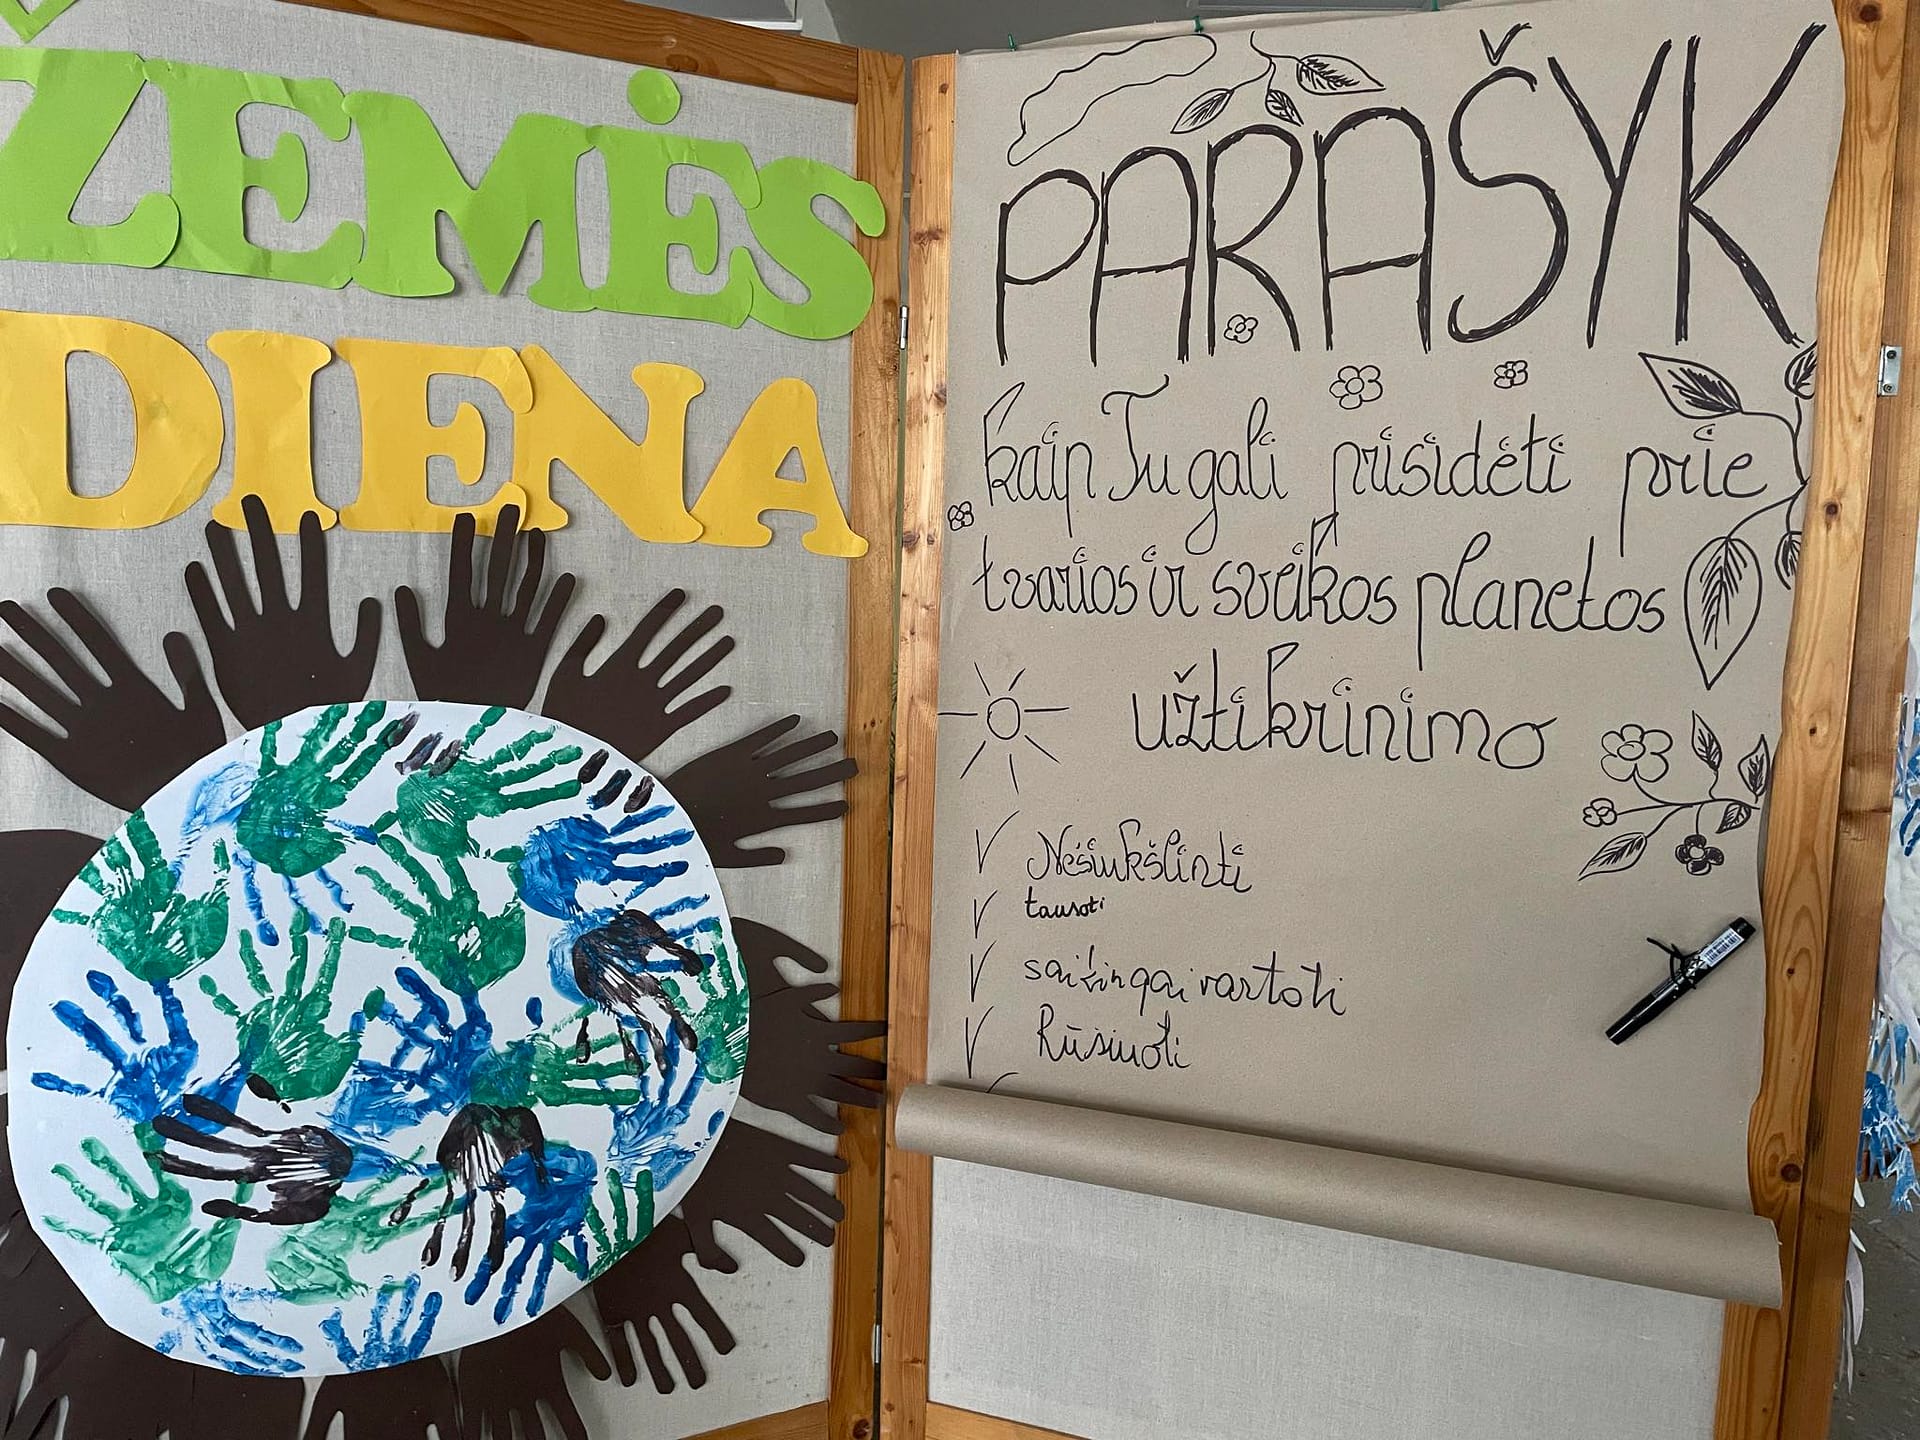 ŽEMĖS
DIENA
PARAŠYK
kaip Tu gali prisidėti prie
tvarios ir sveikos planetos
užtikrinimo
Nešiukšlinti
tausoti
saikingai vartoti
Rūšiuoti